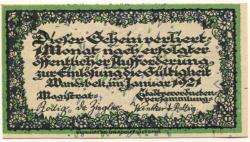 Dieser Schein verliert
1 Monat nach erfolgter
öffentlicher Aufforderung
zur Einlösung die Gültigkeit
Wandsbek, im Januar 1921
Magistrat: Stadtverordneten-
versammlung: